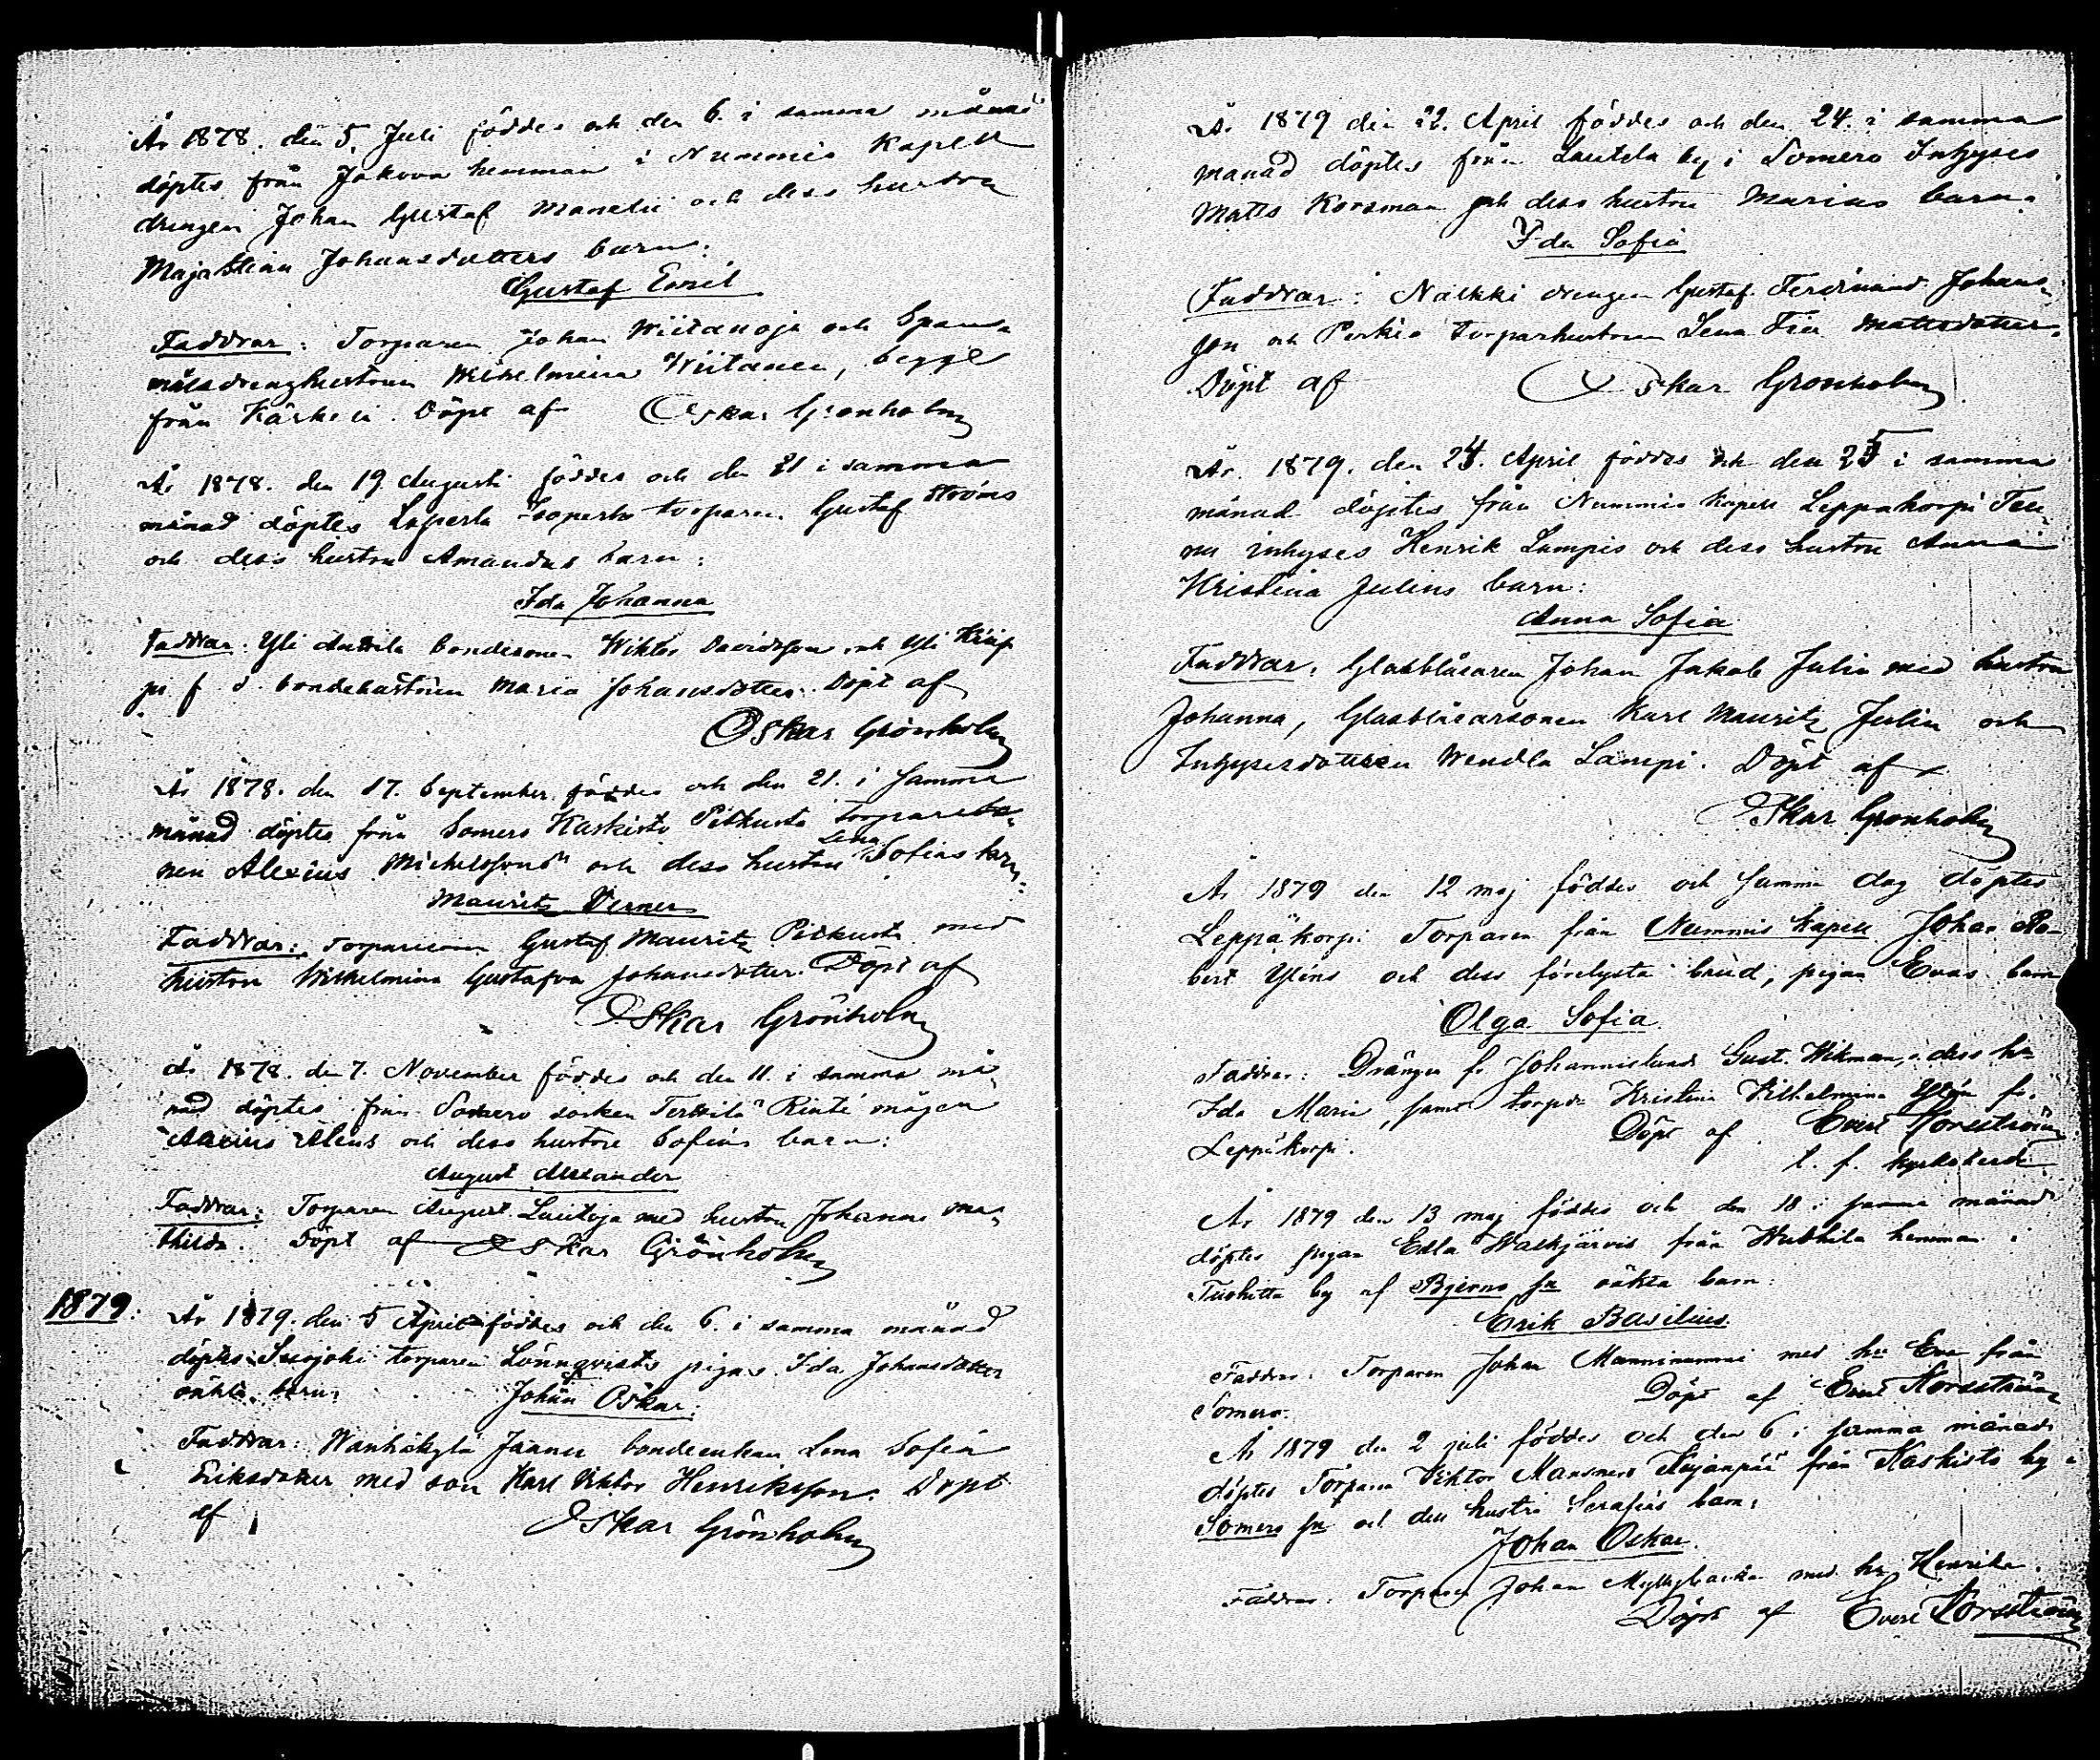 År 1878. den 5. Juli föddes och den 6. i samma månad
döptes från Jakova hemman i Nummis Kapell
drengen Johan Gustaf Manelii och dess hustru
Maja Stina Johansdotters barn:
Gustaf Emil
Faddrar: Torparen Johan Wiitanoja och Spann-
målsdrenghustrun Wilhelmina Wiitanen, begge
från Kärkelä. Döpt af Oskar Grönholm
År 1878. den 19 Augusti föddes och den 21 i samma
månad döptes Laperla torparen Gustaf Ströms
och dess hustru Amandas barn:
Ida Johanna
Faddrar: Yli Anttila bondesonen Wiktor Davidsson och Yli
f. d. bondehustrun Maria Johansdotter. Döpt af
Oskar Grönholm
År 1878. den 17. September föddes och den 21. i samma
månad döptes från Somero Kaskisto Pitkusta torpareso-
nen Alexius Michelssons och dess hustru Lena Sofias barn:
Mauritz Verner
Faddrar: Torparesonen Gustaf Mauritz Pitkusta med
hustru Wilhelmina Gustafva Johansdotter. Döpt af
Oskar Grönholm
År 1878. den 7. November föddes och den 11. i samma må-
nad döptes från Somero socken Terttilä Rinte mågen
Alexius Aléns och dess hustru Sofias barn:
August Alexander
Faddrar: Torparen August Lautoja med hustru Johanna Ma-
thilda. Döpt af Oskar Grönholm
1879.
År 1879. den 5 April föddes och den 6. i samma månad
döptes Suojoki torparen Lönnqvists pigas Ida Johansdotters
oäkta barn:
Johan Oskar.
Faddrar: Wanhakylä Jaanu bondeenkan Lena Sofia
Eriksdotter med son Karl Viktor Henriksson. Döpt
af Oskar Grönholm
År 1879 den 22. April föddes och den 24. i samma
månad döptes från Lautela by i Somero Inhyses
Matts Korsman och dess hustru Marias barn:
Ida Sofia
Faddrar: Nälkki drengen Gustaf Ferdinand Johans-
son och Perkiö torparhustrun Lena Fia Mattsdotter.
Döpt af Oskar Gronholm
År 1879. den 24. April föddes och den 25 i samma
månad döptes från Nummis Kapell Leppäkorpi Tee-
nu inhyses Henrik Lampis och dess hustru Anna
Kristina Julins barn:
Anna Sofia
Faddrar: Glasblåsaren Johan Jakob Julin med hustru
Johanna, Glasblåsarsonen Karl Mauritz Julin och
Inhysesdottren Wendla Lampi. Döpt af
Oskar Gronholm
År 1879 den 12 maj föddes och samma dag döptes
Leppäkorpi Torparen från Nummis Kapell Johan Ro-
bert Yléns och dess förelysta brud, pigan Evas barn
Olga Sofia
Faddrar: Drängen fr Johannislund Gust. Wikman, o. dess hu
Ida Maria, samt torpdr Kristina Vilhelmina Ylén fr.
Leppäkorpi. Döpt af Evert Korsström
t. f. kyrkoherde.
År 1879 den 13 maj föddes och den 18 i samma månad
döptes pigan Edla Walkjärvis från Huhtila hemman i
Tuohitta by af Bjerno sn oäkta barn:
Erik Basilius
Faddrar: Torparen Johan Manninummi med hu Eva från
Somero. Döpt af Evert Korsström
År 1879 den 2 juli föddes och den 6 i samma månad
döptes Torparen Viktor Mansners Kujanpää från Kaskisto by i
Somero sn och dess hustru Serafias barn:
Johan Oskar.
Faddrar: Torparen Johan Myllybacka med hu Henrika.
Döpt af Evert Korsström